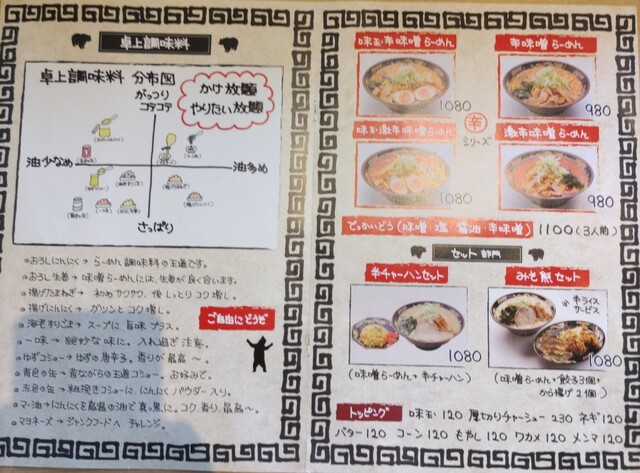 卓上調味料
卓上調味料 分布図
がっつり
コテコテ
かけ放題
やりたい放題
油少なめ
油多め
さっぱり
◎おろしにんにく→らーめん調味料の王道です。
◎おろし生姜→味噌らーめんには、生姜が良く合います。
◎揚げたまねぎ→初めサクサク、後しっとりコク増し。
◎揚げにんにく→ガツンとコク増し。
◎海老すりごま→スープに旨味プラス。
◎一味→絶妙な味に。入れ過ぎ注意。
◎ゆずコショー→ゆずの唐辛子。香りが最高〜。
◎青色の缶→昔ながらの王道コショー。お好みで。
◎赤色の缶→粗挽きコショーに、にんにくパウダー入り。
◎マー油→にんにくを高温の油で真っ黒に。コク、香り、最高〜。
◎マヨネーズ→ジャンクフードへチャレンジ。
ご自由にどうぞ
味玉・辛味噌らーめん
1080
辛味噌らーめん
980
辛
シリーズ
味玉・激辛味噌らーめん
1080
激辛味噌らーめん
980
でっかいどう(味噌・塩・醤油・辛味噌) 1100(3人前)
セット部門
半チャーハンセット
1080
(味噌らーめん+半チャーハン)
みそ熊セット
半ライス
サービス
1080
(味噌らーめん+餃子3個+
から揚げ2個)
トッピング
味玉 120 厚切りチャーシュー 230 ネギ120
バター120 コーン120 もやし120 ワカメ120 メンマ120